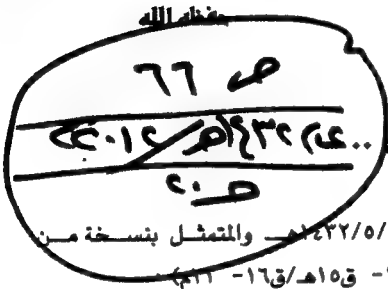 حفظه الله
ص ٦٦
١٤٣٢هـ/٢٠١٢
ص ٢٠
/١٤٣٢/٥هـ والمتمثل بنسخة من
- ق١٥هـ/ق١٦-